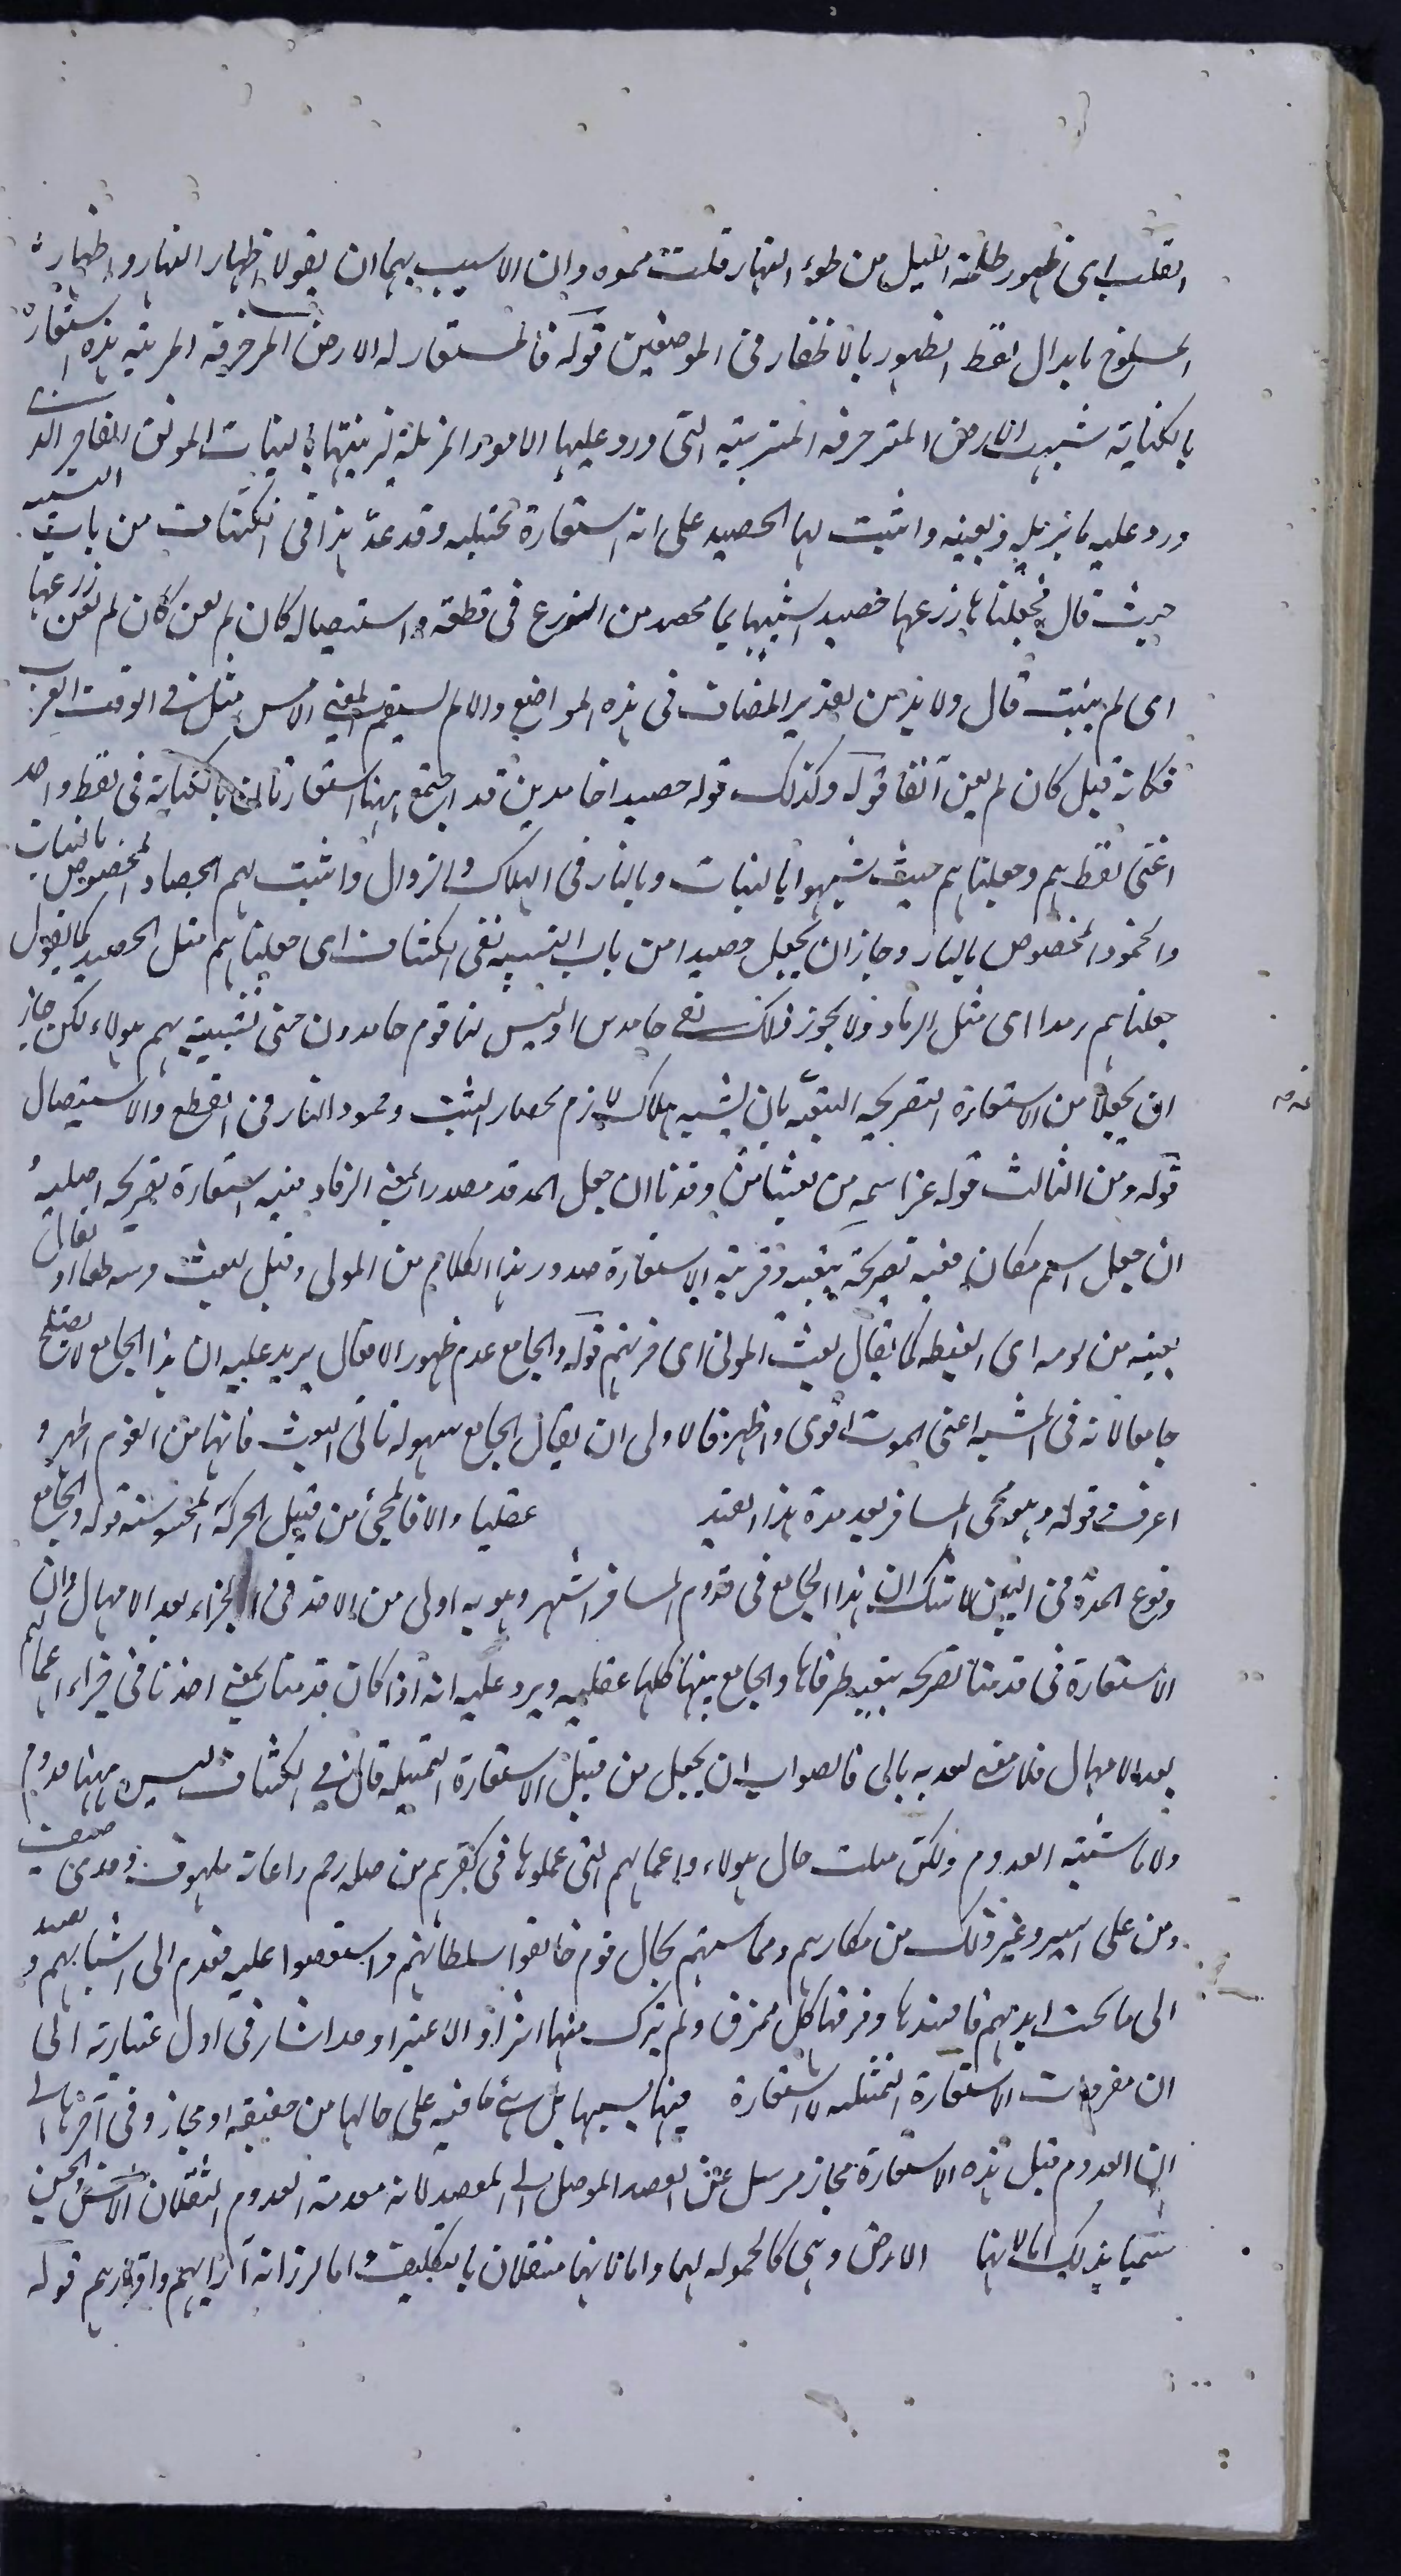 القلب اى ظهور ظلمة الليل من ضوء النهار قلت مموه وان الاسيب بهما ان يقولا اظهار النهار واظهار
المسلوخ بابدال لفظ الظهور بالاظهار فى الموضعين قوله فالمستعار له الارض المزخرفة المزينة هذه استعارة
بالكناية شبهت الارض المتزخرفة المتزينة التى ورد عليها الامور المزيلة لزينتها بالنبات المونق المفاجر الذى
ورد عليه ما يزيله ويعينه واثبت لها الحصيد على انه استعارة تخييلية وقد عد هذا فى الكشاف من باب التشبيه
حيث قال فجعلناها زرعها حصيدا شبيها بما يحصد من الزرع فى قطعه واستيصاله كان لم تغن كان لم تغن زرعها
اى لم ينبت قال ولا بد من تقدير المضاف فى هذه المواضع والا لم يستقم المعنى الامس مثل فى الوقت القريب
فكانه قيل كان لم تغن آنفا قوله وكذلك قوله حصيدا خامدين قد اجتمع ههنا استعارتان بالكناية فى لفظ واحد
اعنى لفظ هم وجعلناهم حيث شبهوا بالنبات وبالنار فى الهلاك والزوال واثبت لهم الحصاد المخصوص بالنبات
والخمود المخصوص بالنار وجاز ان يجعل حصيدا من باب التشبيه ففى الكشاف اى جعلناهم مثل الحصيد كما يقول
جعلناهم رمدا اى مثل الرماد ولا يجوز ذلك فى خامدين اذ ليس لنا قوم خامدون حتى تشبيه بهم هولاء لكن جاز
ان يجعلا من الاستعارة التصريحية التبعية بان يشبه هلاك لازم بحصار النبت وخمود النار فى القطع والاستيصال
قوله ومن الثالث قوله عز اسمه من بعثنا من مرقدنا ان جعل المرقد مصدرا بمعنى الرقاد ففيه استعارة تصريحية اصلية
ان جعل اسم مكان ففيه تصريحية تبعية وقرينة الاستعارة صدور هذا الكلام من المولى وقيل البعث
بعثه من نومه اى ايقظه كما يقال بعث الموتى اى نشرهم قوله والجامع عدم ظهور الافعال يريد عليه ان هذا الجامع لا يصلح
جامعا لانه فى المشبه اعنى الموت اقوى واظهر فالاولى ان يقال الجامع سهولة تاتى البعث فانها من النوم اظهر و
اعرف قوله وهو مجى المسافر بعد مدة هذا القيد عقليا والا فالمجئ من قبيل الحركة المحسوسة قوله والجامع
وقوع المدة فى البين لا شك ان هذا الجامع فى قدوم المسافر اشهر وهو به اولى من الاخذ فى الجزاء بعد الامهال وان
الاستعارة فى قدمنا تصريحية تبعية طرفاها والجامع بينهما كلها عقلية ويرد عليه انه اذا كان قدمنا بمعنى اخذنا فى جزاء اعمالهم
بعد الامهال فلا معنى لتعديه بالى فالصواب ان يجعل من قبيل الاستعارة التمثيلية قال فى الكشاف ليس ههنا قدوم
ولا ما يشبه القدوم ولكن مثلت حال هولاء واعمالهم التى عملوها فى كفرهم من صلة رحم واغاثة ملهوف وقرى ضيف
ومن على اسير وغير ذلك من مكارهم ومحاسنهم بحال قوم خالفوا سلطانهم واستعصوا عليه فقدم الى اشيائهم وقصد
الى ما تحت ايديهم فافسدها وفرقها كل ممزق ولم يترك منها اثرا ولا عثيرا وقد اشار فى اول عبارته الى
ان مفردات الاستعارة التمثيلية لا استعارة فيها بسببها بل شئ ما فيه على حالها من حقيقة او مجاز وفى آخرها الى
ان القدوم قبل هذه الاستعارة مجاز مرسل عن القصد الموصل الى المقصد لانه مقدمة القدوم الثقلان الانس والجن
سميا بذلك اما لانهما الارض وهى كالحمولة لهما واما لانهما مثقلان بالتكليف واما لرزانة آرائهم واقدارهم قوله